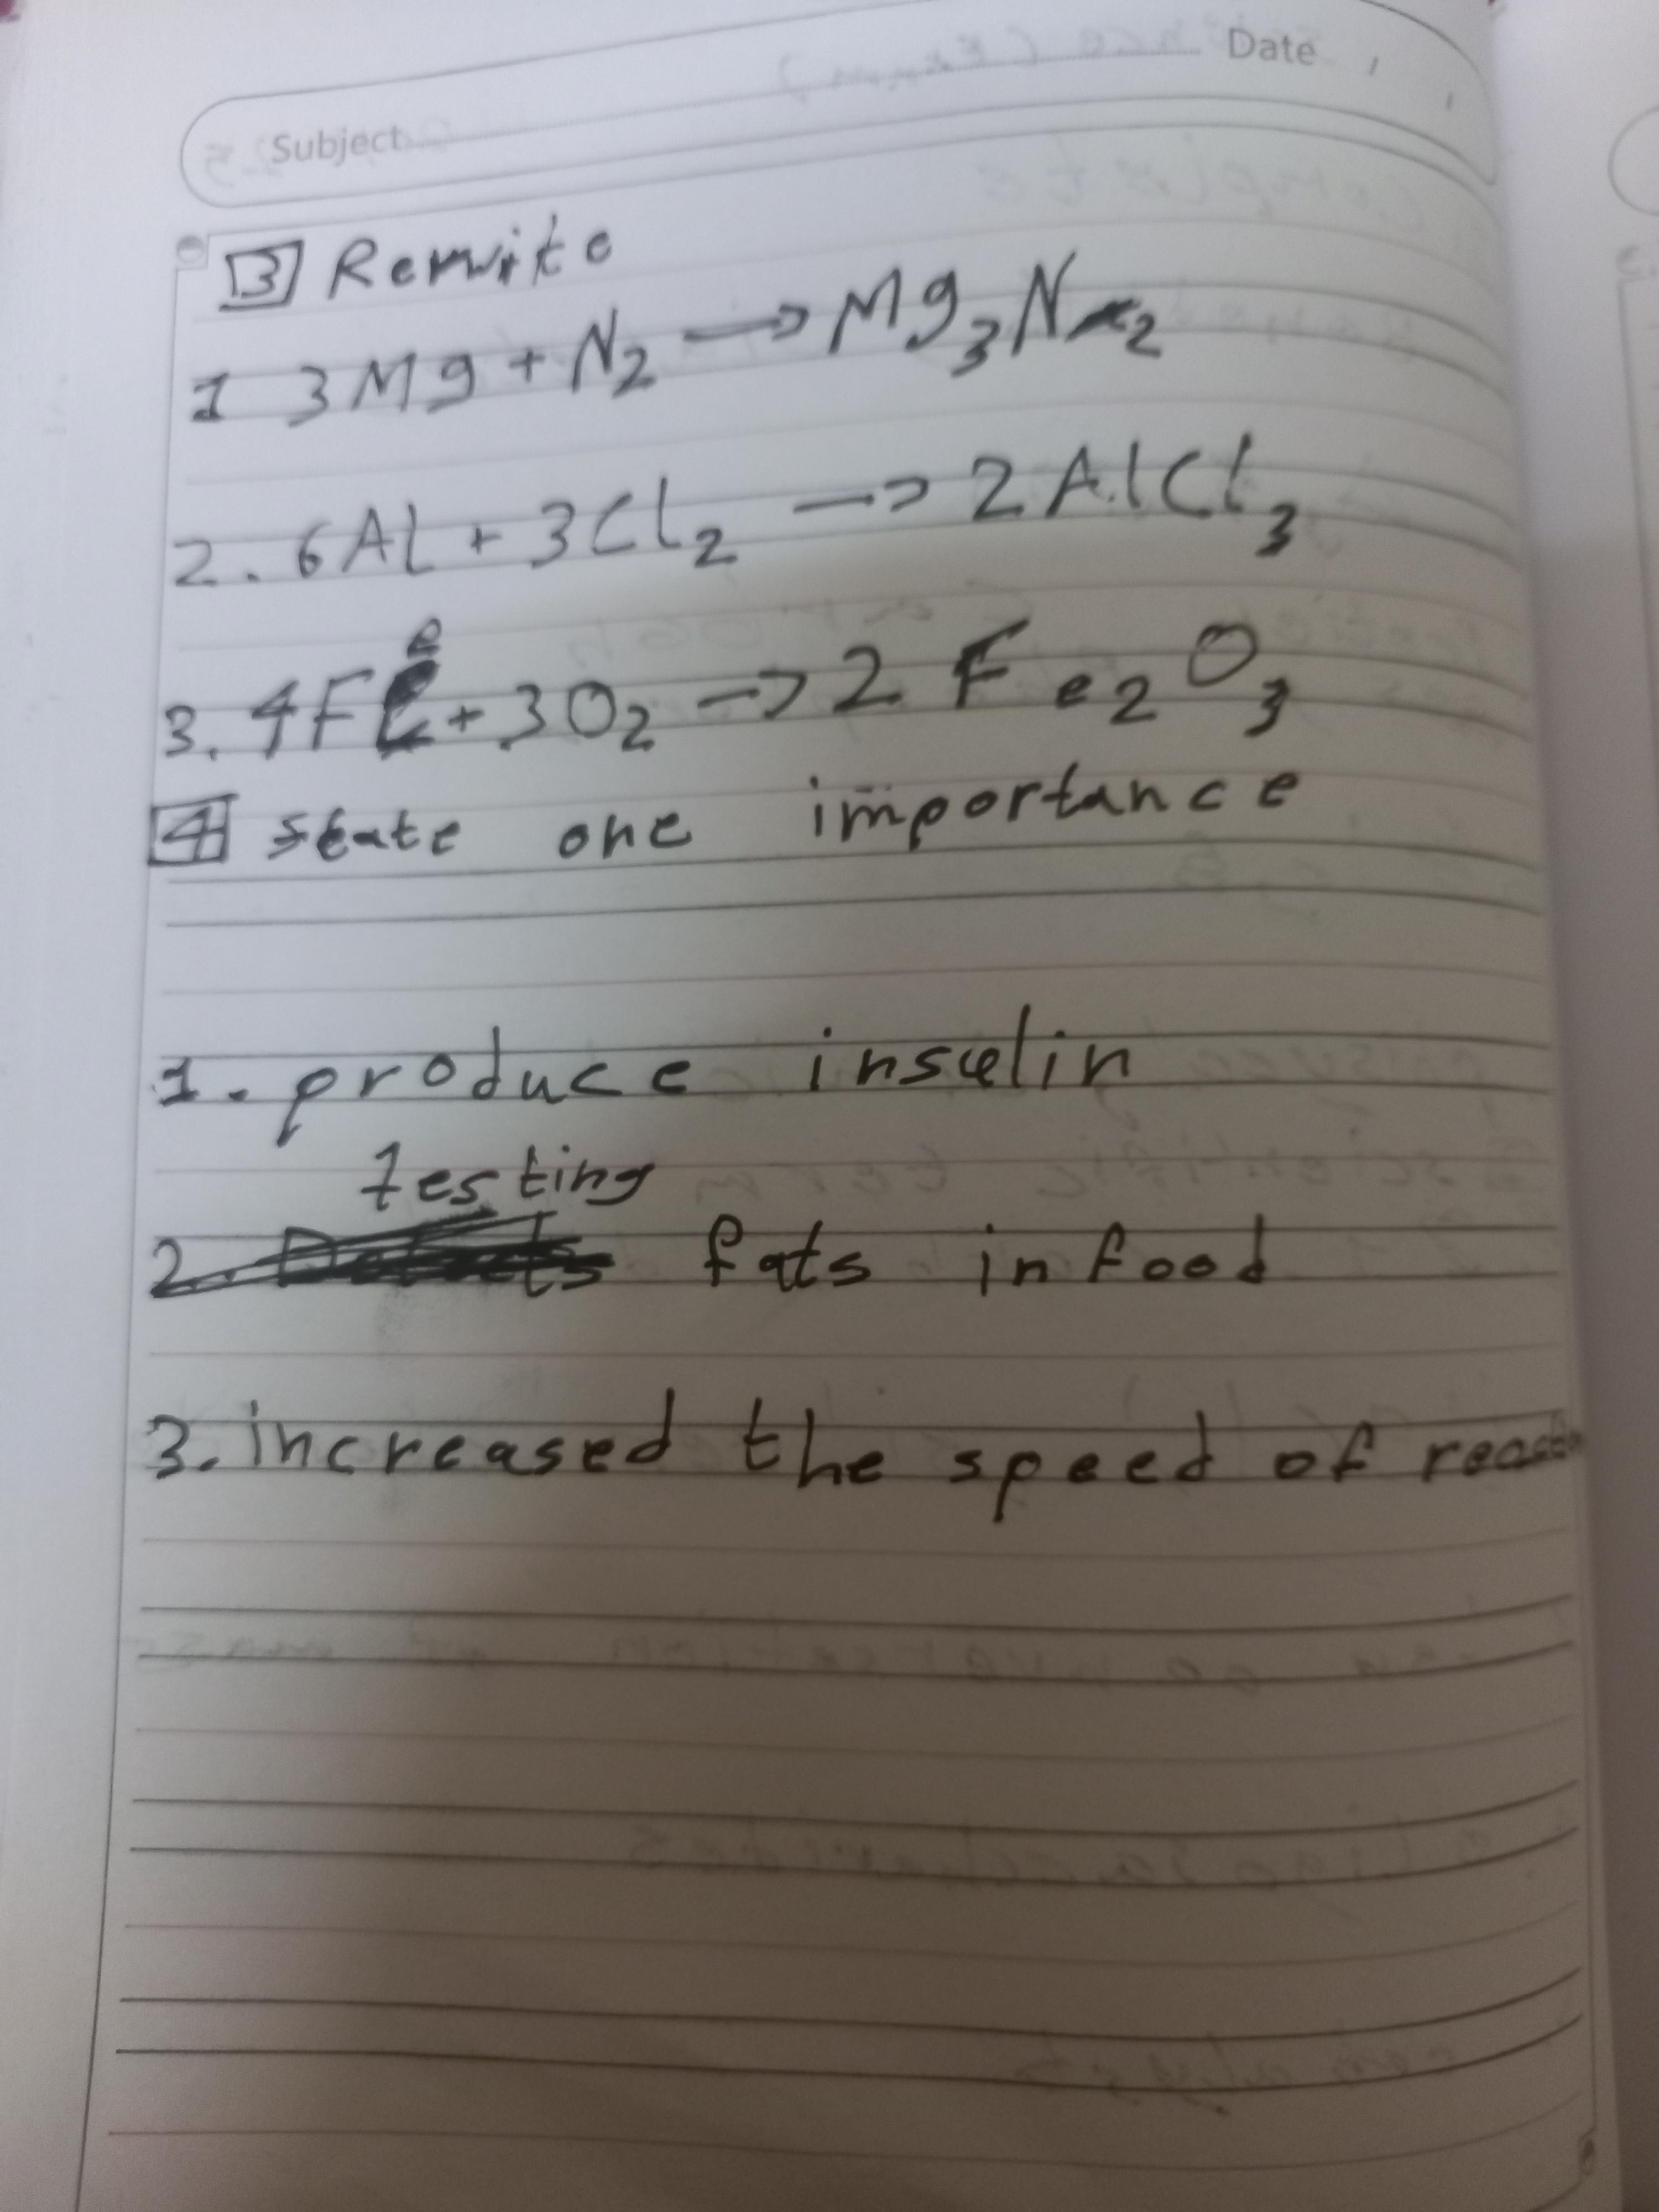 Date / /
Subject
3 Rewrite
1 3Mg + N2 → Mg3N2
2. 6Al + 3Cl2 → 2AlCl3
3. 4Fe + 3O2 → 2 Fe2O3
4 state one importance
1. produce insulin
testing
2. fats in food
3. increased the speed of